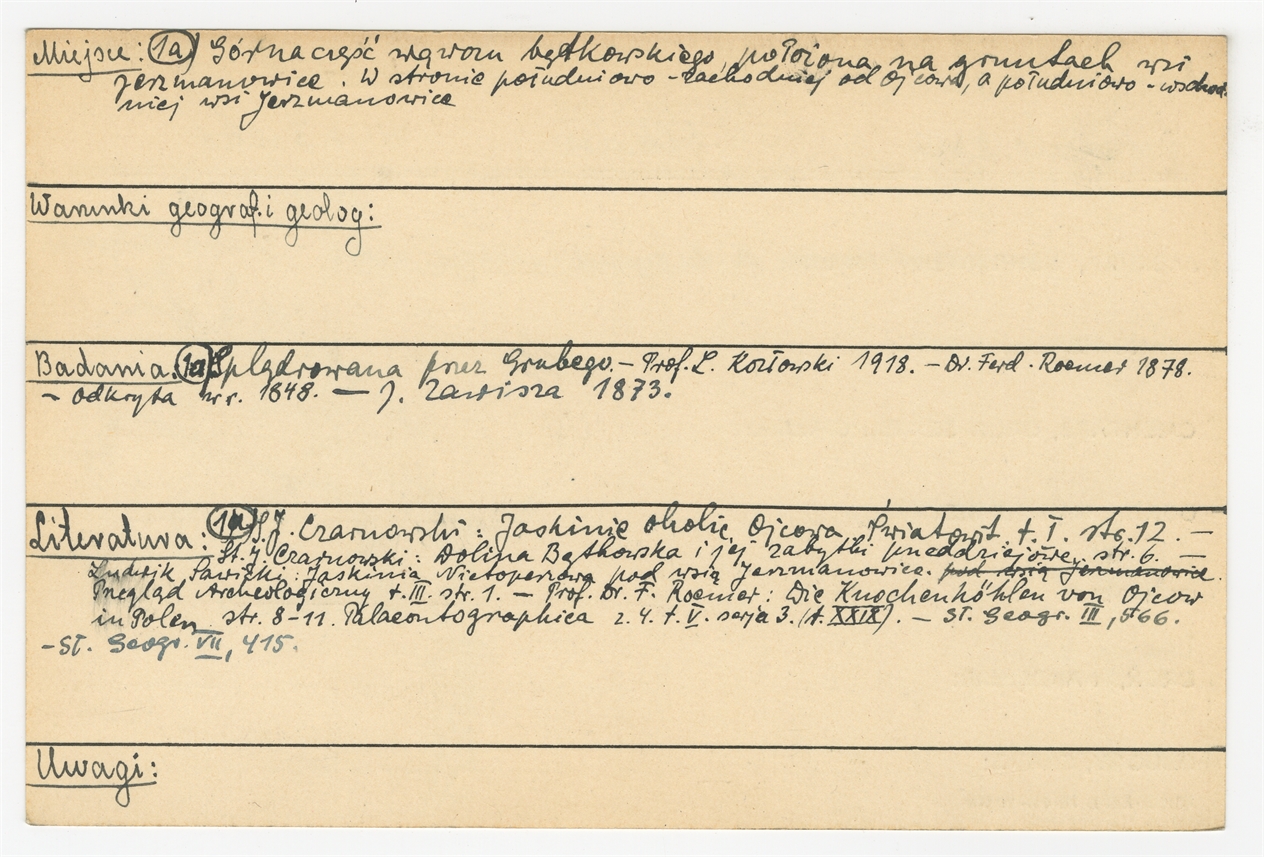 Miejsce: 1a) Górna część wąwozu będkowskiego, położona na gruntach wsi
Jerzmanowice. W stronie południowo-zachodniej od Ojcowa, a południowo-wschod-
niej wsi Jerzmanowice
Warunki geograf. i geolog:
Badania: 1a) Splądrowana przez Grubego. – Prof. L. Kozłowski 1918. – Dr. Ferd. Roemer 1878.
– odkryta w r. 1848. – J. Zawisza 1873.
Literatura: 1a) S. J. Czarnowski: Jaskinie okolic Ojcowa Światowit t. I. str. 12. –
St. J. Czarnowski: Dolina Będkowska i jej zabytki przeddziejowe. str. 6. –
Ludwik Sawicki: Jaskinia Nietoperzowa pod wsią Jerzmanowice. pod wsią Jerzmanowice.
Przegląd Archeologiczny t. III. str. 1. – Prof. Dr. F. Roemer: Die Knochenhöhlen von Ojcow
in Polen str. 8-11. Palaeontographica z. 4. t. V. serja 3. (t. XXIX). – Sł. Geogr. III, 566.
– Sł. Geogr. VII, 415.
Uwagi: